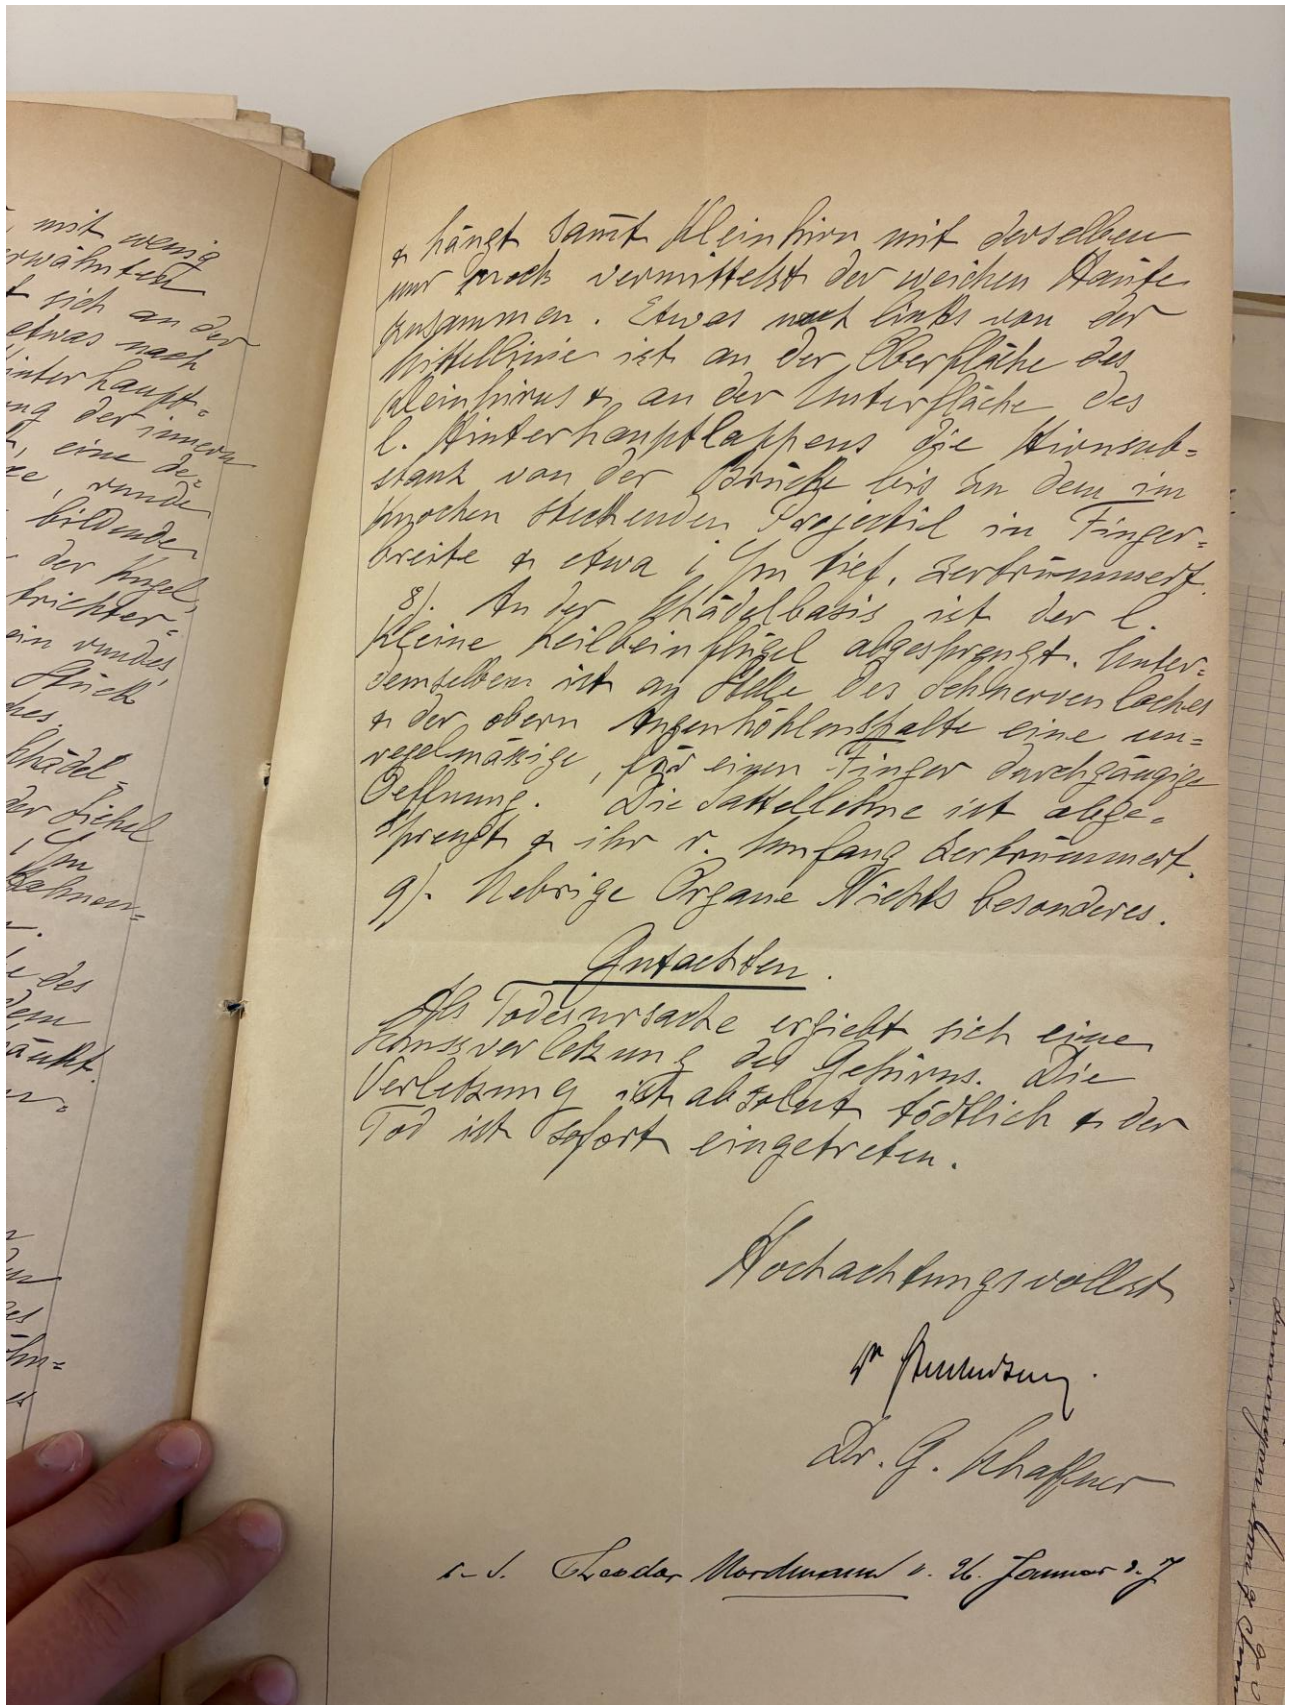 mit wenig
rwähnten
t sich an der
etwas nach
interhaupt-
ng der innern
eine de-
runde
bildende
der Kugel
trichter-
ein rundes
Stück
ches.
Schädel-
der Sichel
1 Cm
Hahnen-
e des
dem
änkt.
& hängt sam̄t Kleinhirn mit derselben
nur noch vermittelst der weichen Häute
zusammen. Etwas nach links von der
Mittellinie ist an der Oberfläche des
Kleinhirns & an der Unterfläche des
l. Hinterhauptlappens die Hirnsub-
stanz von der Brücke bis zu dem im
Knochen steckenden Projectil in Finger-
breite & etwa 1 Cm tief, zertrümmert.
8). An der Schädelbasis ist der l.
kleine Keilbeinflügel abgesprengt. Unter-
demselben ist an Stelle des Sehnervenloches
& der obern Augenhöhlenspalte eine un-
regelmässige, für einen Finger durchgängige
Oeffnung. Die Sattellehne ist abge-
sprengt & ihr r. Umfang zertrümmert.
9). Uebrige Organe Nichts besonderes.
Gutachten.
Als Todesursache ergiebt sich eine
Schussverletzung des Gehirns. Die
Verletzung ist absolut tödtlich & der
Tod ist sofort eingetreten.
Hochachtungsvollst
Dr
Dr. G. Schaffner
Theodor Nordmann v. 26. Januar d. J